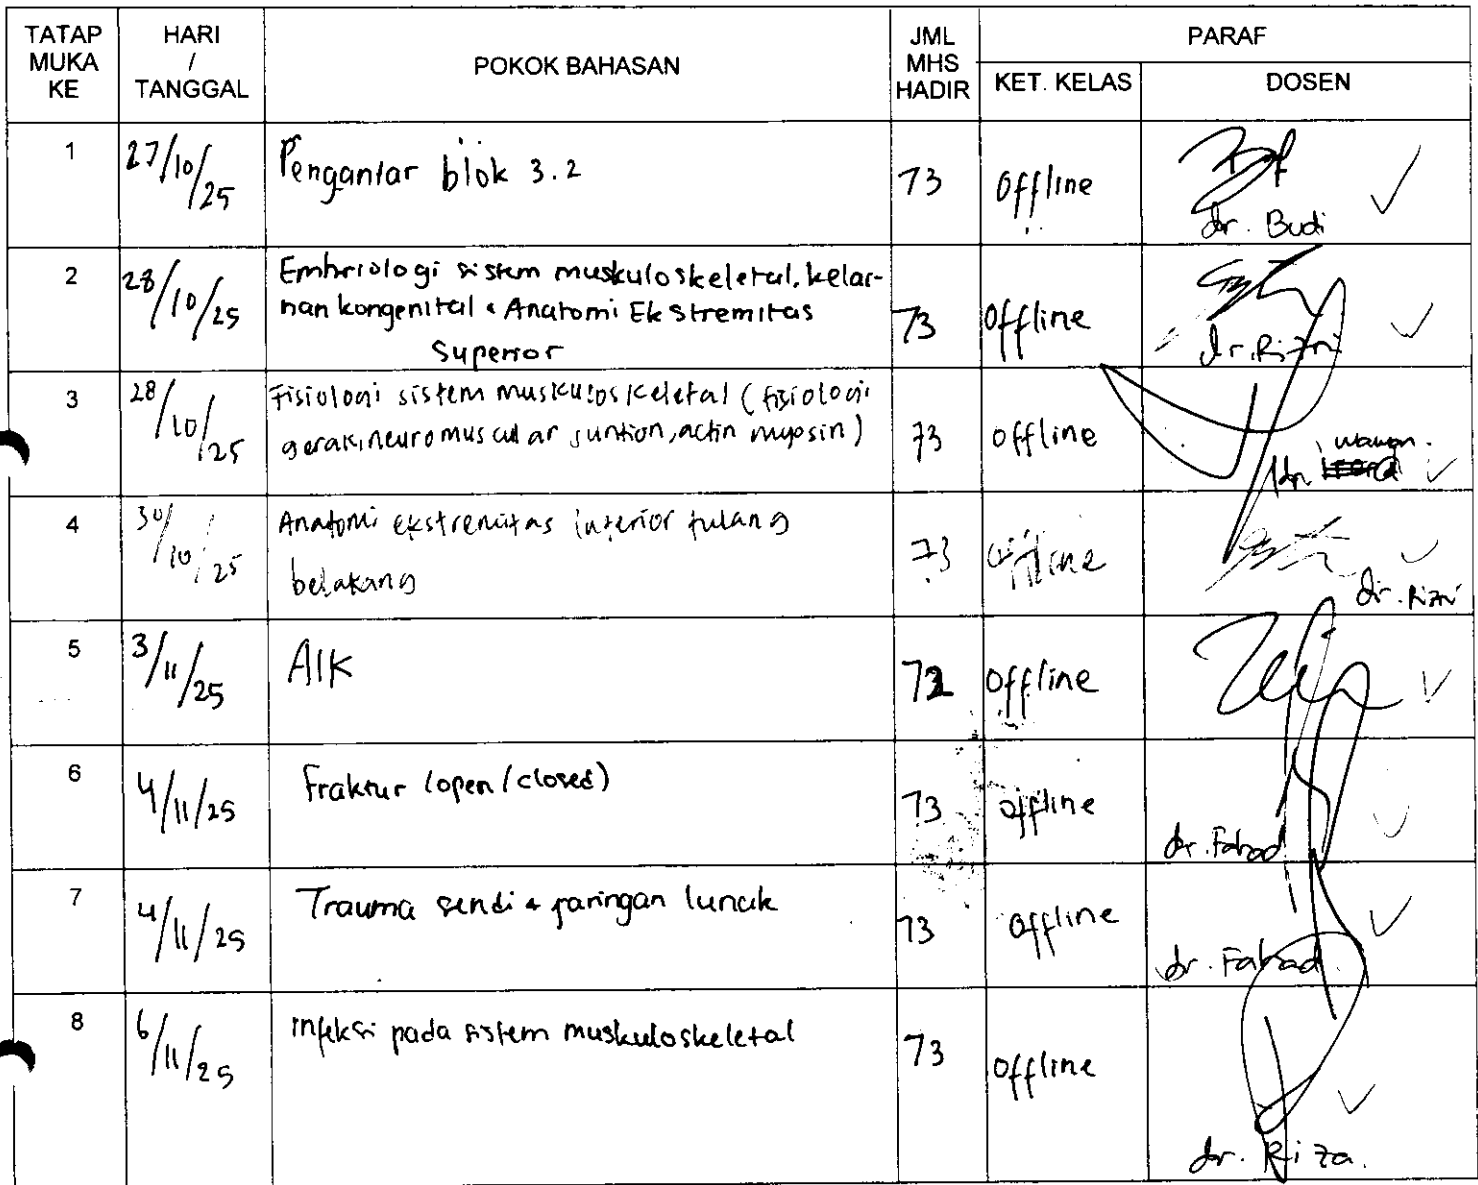 TATAP MUKA KE HARI / TANGGAL POKOK BAHASAN JML MHS HADIR PARAF
KET. KELAS DOSEN
1 27/10/25 Pengantar blok 3.2 73 Offline dr. Budi
2 28/10/25 Embriologi sistem muskuloskeletal, kelai-
nan kongenital & Anatomi Ekstremitas
Superior 73 Offline dr. Rizni
3 28/10/25 Fisiologi sistem muskuloskeletal (fisiologi
gerak, neuromuscular juntion, actin myosin) 73 offline wawan.
4 30/10/25 Anatomi ekstremitas inferior tulang
belakang 73 offline dr. Rizni
5 3/11/25 AIK 72 offline
6 4/11/25 Fraktur (open/closed) 73 offline dr. Fahad
7 4/11/25 Trauma sendi & jaringan lunak 73 offline dr. Fahad
8 6/11/25 Infeksi pada sistem muskuloskeletal 73 offline dr. Riza.